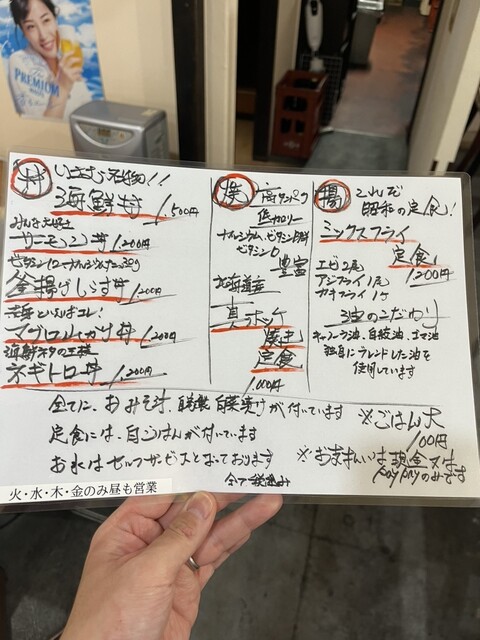 The PREMIUM
丼
いさむ名物!!
海鮮丼 1,500円
みんな大好き
サーモン丼 1,200円
釜揚げしらす丼 1,200円
マグロユッケ丼 1,200円
海鮮ネタの王様
ネギトロ丼 1,200円
焼
高タンパク
低カロリー
ナルシウム、ビタミンB群
ビタミンD
豊富
北海道産
真ホッケ
焼き
定食
1,000円
揚
これぞ
昭和の定食!
ミックスフライ
定食
1,200円
エビ2尾
アジフライ1尾
カキフライ1ヶ
油のこだわり
キャノーラ油、白絞油、ゴマ油
独自にブレンドした油を
使用しています
全てに、おみそ汁、自家製白菜漬けが付いています
定食には、白ごはんが付いています
お水はセルフサービスとなっております
全て税込み
※ごはん大
100円
※お支払いは現金又は
PayPayのみです
火・水・木・金のみ昼も営業